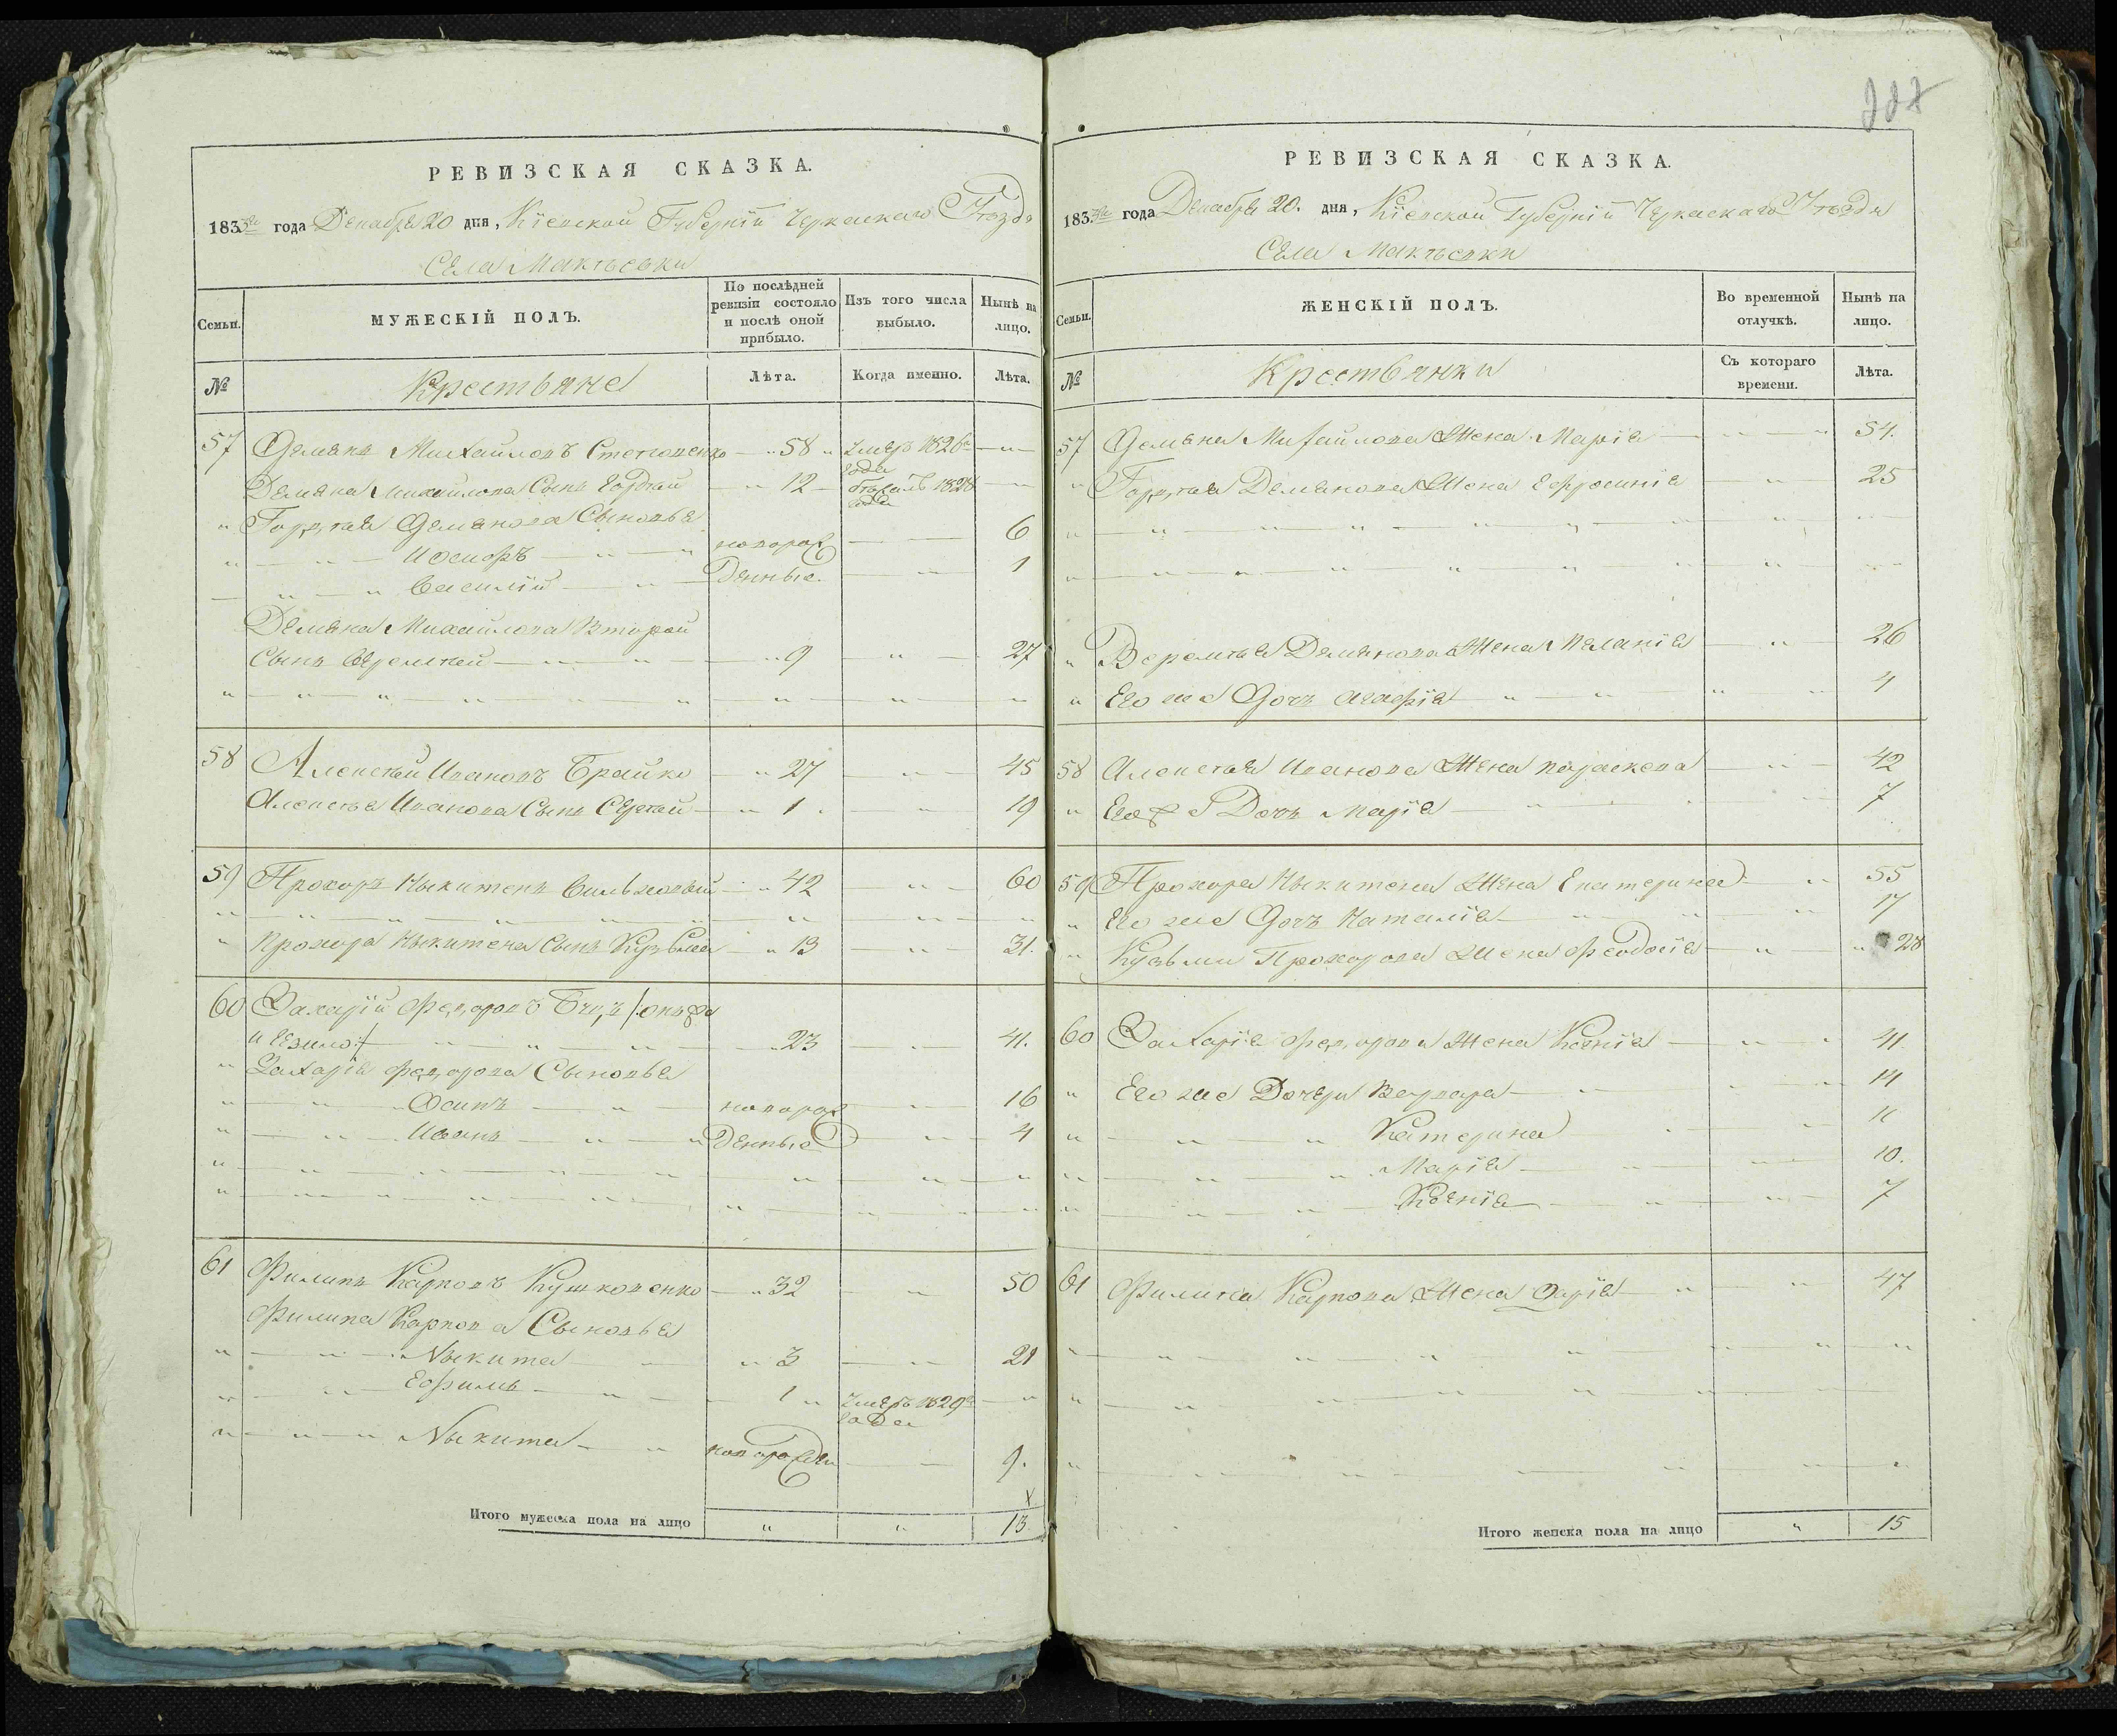 РЕВИЗСКАЯ СКАЗКА.
183 года Декабря 20 дня, Кіевской Губерніи Черкаскаго Уѣзда
Села Маклѣевки
Семьи.
МУЖЕСКІЙ ПОЛЪ.
По послѣдней ревизіи состояло и послѣ оной прибыло.
Изъ того числа выбыло.
Нынѣ на лицо.
№
Крестьяне
Лѣта.
Когда именно.
Лѣта.
57 Демянъ Михайловъ 58 Умеръ 1826 года
Демяна Михайлова Сынъ Гордѣй 12 1828 года
Гордѣя Демянова Сыновья
Иосифъ новорож 6
Василій денные. 1
Демяна Михайлова Второй
Сынъ Веремѣй 9 27
58 Алексѣй Ивановъ Брайко 27 45
Алексѣя Иванова Сынъ Сергѣй 1 19
59 Прохоръ Ныкитенъ 42 60
Прохора Ныкитена Сынъ Кузьма 13 31.
60 Захарій Федоровъ
23 41.
Захарія Федорова Сыновья
Осипъ новорож 16
Иванъ денные 4
61 Филипъ Карповъ 32 50
Филипа Карпова Сыновья
Ныкита 3 21
Ефимъ 1 Умеръ 1829 года
Ныкита новорожден 9.
Итого мужеска пола на лицо 13
РЕВИЗСКАЯ СКАЗКА.
183 года Декабря 20. дня, Кіевской Губерніи Черкаскаго Уѣзда
Села Маклѣевки
Семьи.
ЖЕНСКІЙ ПОЛЪ.
Во временной отлучкѣ.
Нынѣ на лицо.
№
Крестьянки
Съ котораго времени.
Лѣта.
57 Демяна Михайлова Жена Марія 54.
Гордѣя Демянова Жена Ефросинія 25
Веремѣя Демянова Жена Меланія 26
Его же Дочъ Агафія 4
58 Алексѣя Иванова Жена Параскева 42
Его же Дочъ Марія 7
59 Прохора Ныкитена Жена Екатерина 55
Его же Дочъ Наталія 17
Кузьми Прохорова Жена Феодосія 28
60 Захарія Федорова Жена Ксенія 41.
Его же Дочери Варвара 14
Катерина 11
Марія 10.
Ксенія 7
61 Филипа Карпова Жена Дарія 47
Итого женска пола на лицо 15